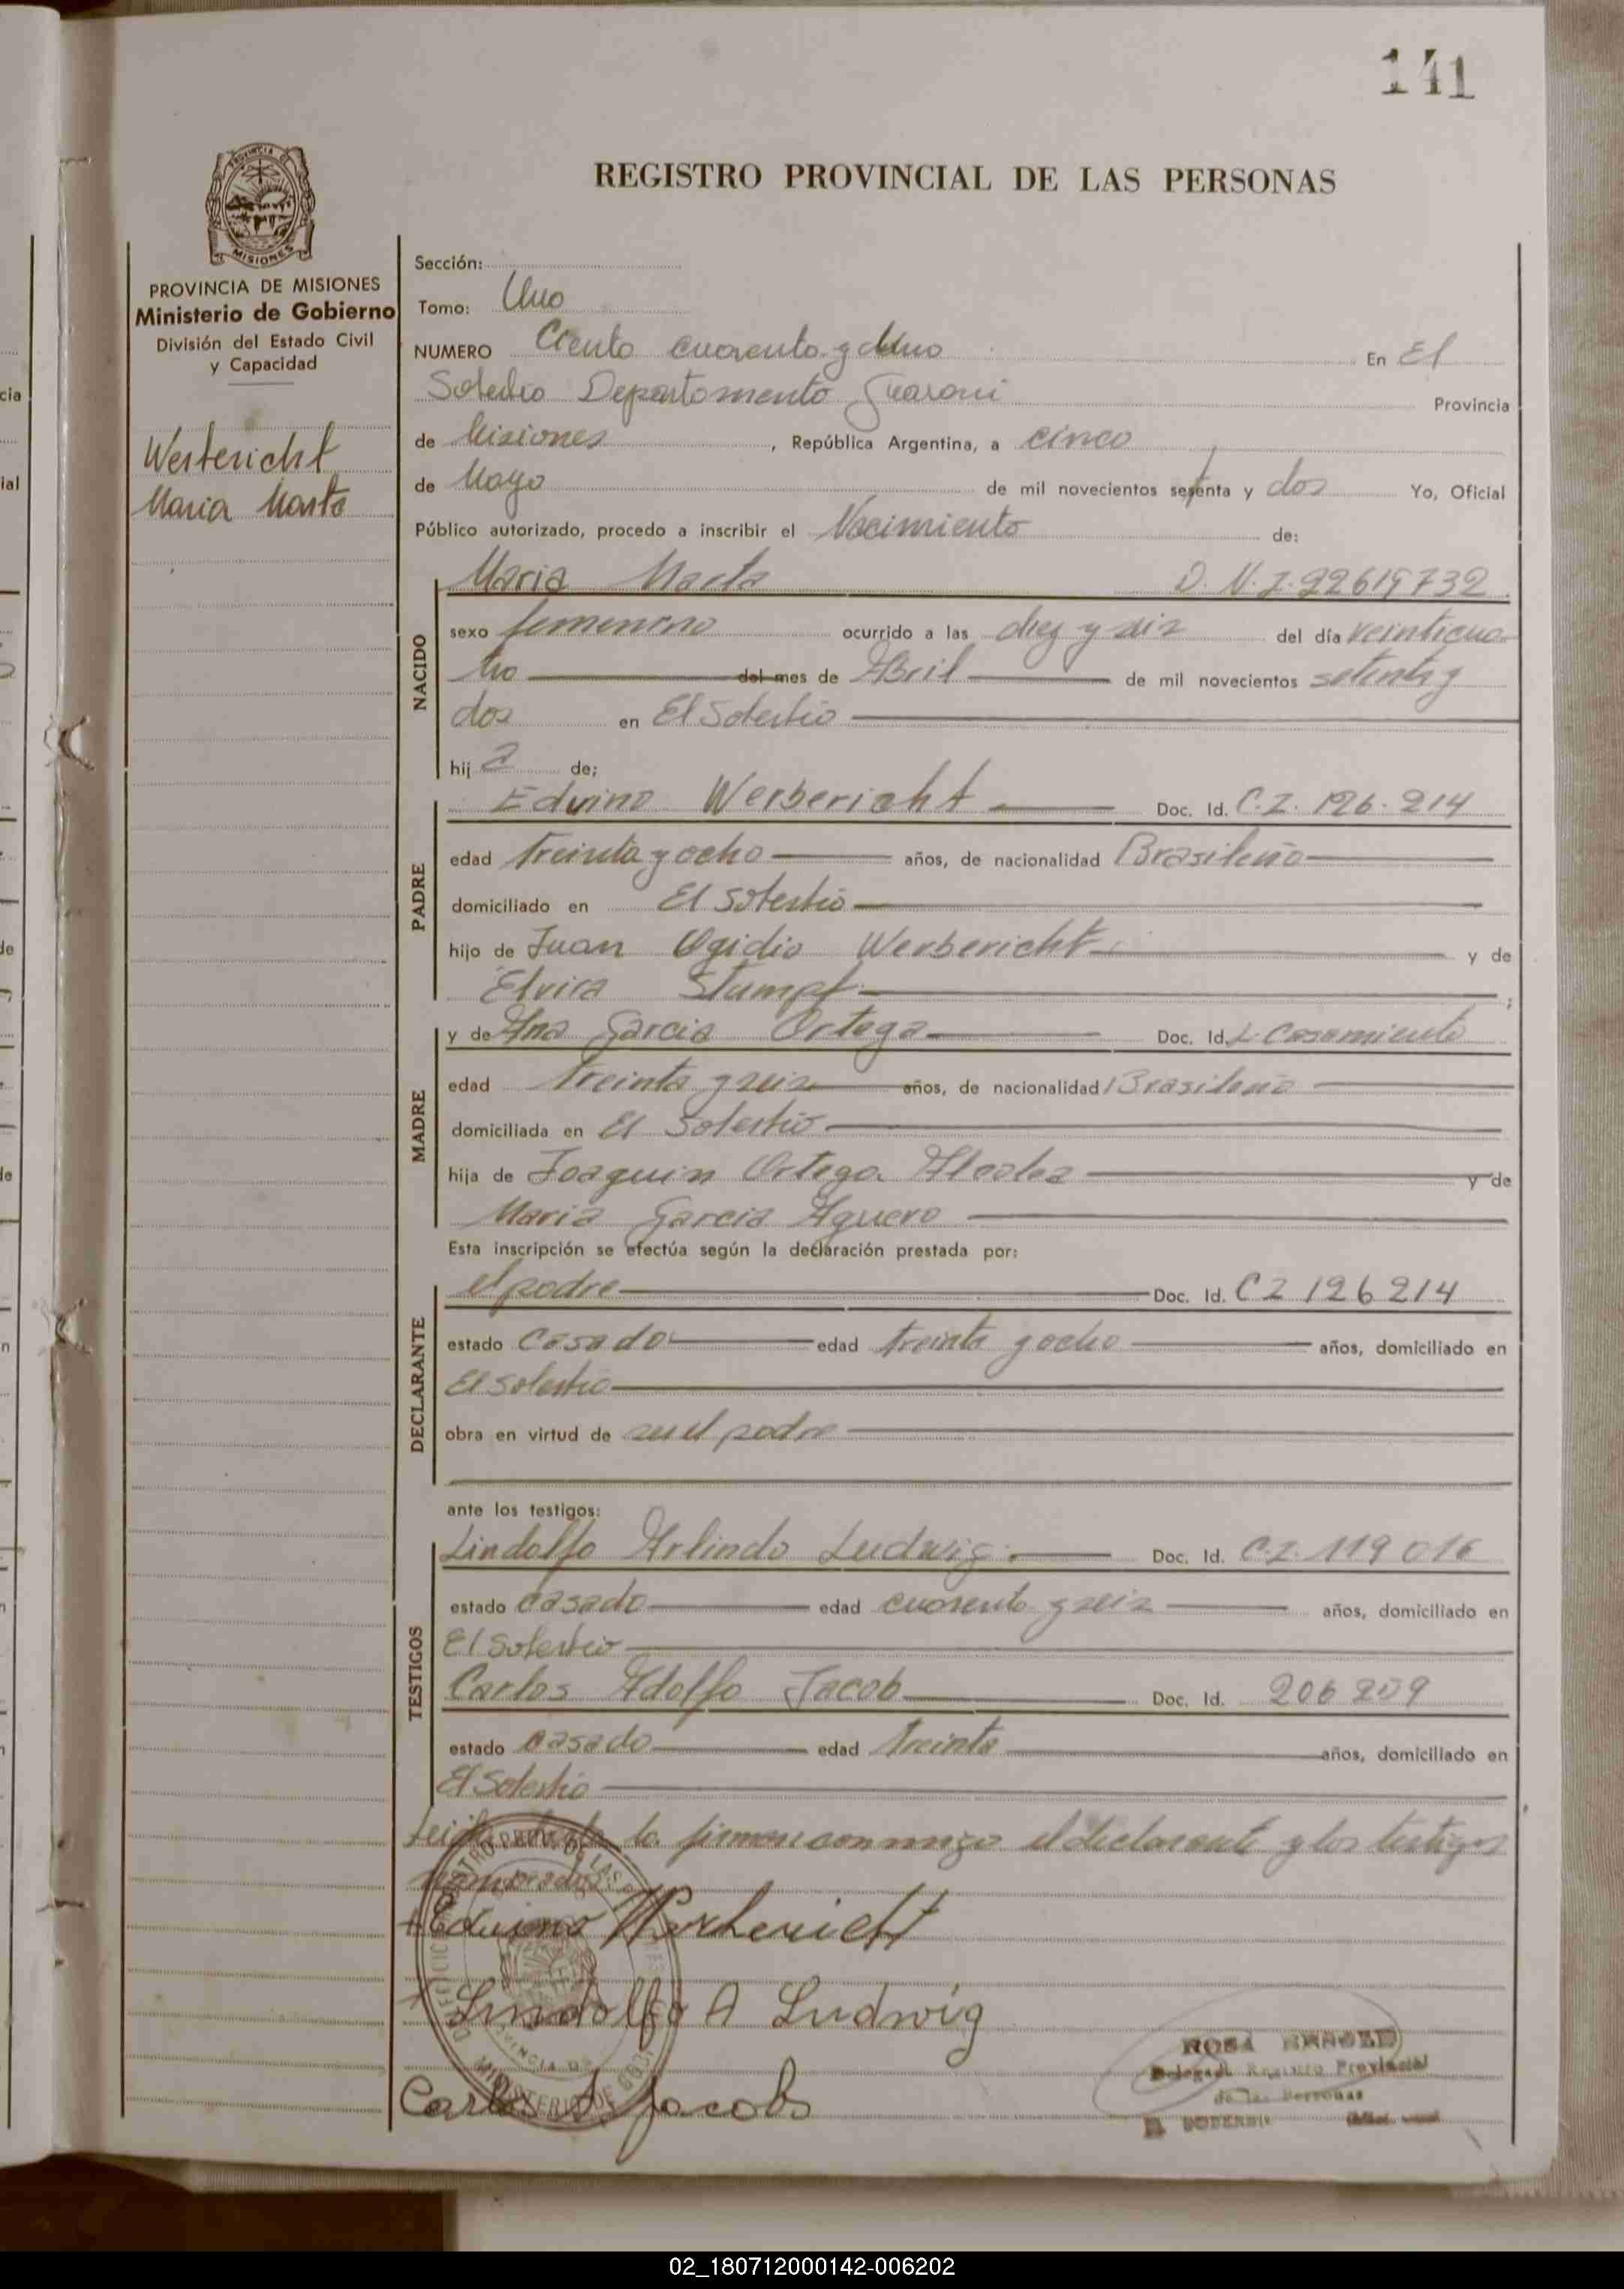 141
REGISTRO PROVINCIAL DE LAS PERSONAS
PROVINCIA DE MISIONES
Ministerio de Gobierno
División del Estado Civil
y Capacidad
Werbericht
Maria Marta
Sección:
Tomo: Uno
NUMERO Ciento cuarenta y Uno En El
Soberbio Departamento Guarani Provincia
de Misiones, República Argentina, a cinco
de Mayo de mil novecientos setenta y dos Yo, Oficial
Público autorizado, procedo a inscribir el Nacimiento de:
NACIDO
Maria Marta D.N.I. 22619732
sexo femenino ocurrido a las diez y seis del día veinticua-
tro del mes de Abril de mil novecientos setenta y
dos en El Soberbio
hija de;
PADRE
Edvino Werbericht Doc. Id. C.I. 126.214
edad treinta y ocho años, de nacionalidad Brasileño
domiciliado en El Soberbio
hijo de Juan Ogidio Werbericht y de
Elvira Stumpf;
MADRE
y de Ana Garcia Ortega Doc. Id. L. Casamiento
edad treinta y seis años, de nacionalidad Brasileña
domiciliada en El Soberbio
hija de Joaquin Ortega y de
Maria Garcia Aguero
Esta inscripción se efectúa según la declaración prestada por:
DECLARANTE
el padre Doc. Id. C I 126214
estado casado edad treinta y ocho años, domiciliado en
El Soberbio
obra en virtud de ser el padre
ante los testigos:
TESTIGOS
Lindolfo Arlindo Ludwig Doc. Id. C.I. 119016
estado casado edad cuarenta y seis años, domiciliado en
El Soberbio
Carlos Adolfo Jacob Doc. Id. 206209
estado casado edad treinta años, domiciliado en
El Soberbio
Leida el acta la firman conmigo el declarante y los testigos
nombrados
Edvino Werbericht
Lindolfo A Ludwig
Carlos A Jacobs
ROSA
Delegada Registro Provincial
de las Personas
EL SOBERBIO
02_180712000142-006202